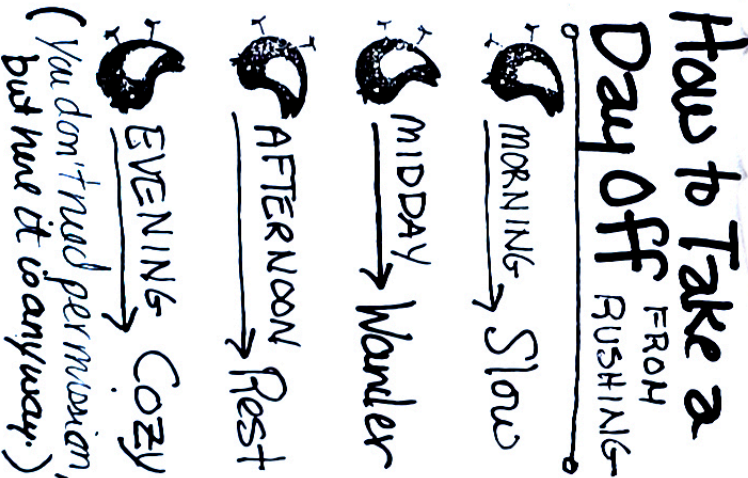 How to Take a
Day Off FROM
RUSHING
MORNING → Slow
MIDDAY → Wander
AFTERNOON → Rest
EVENING → Cozy
(You don't need permission,
but here it is anyway.)